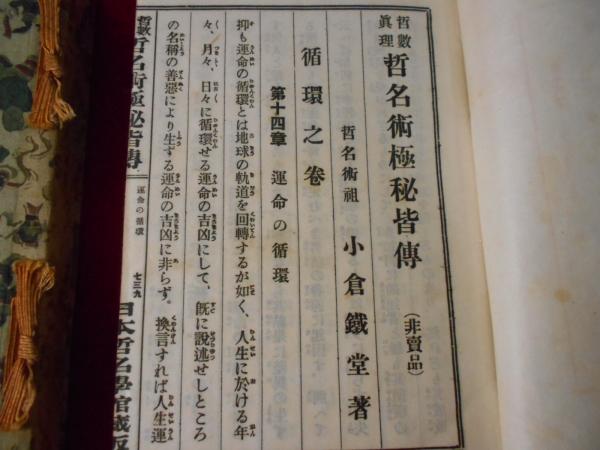 哲數眞理 哲名術極秘皆傳 (非賣品)
哲名術祖 小倉鐵堂著
循環之卷
第十四章 運命の循環
抑も運命の循環とは地球の軌道を回轉するが如く、人生に於ける年
々、月々、日々に循環せる運命の吉凶にして、既に説述せしところ
の名稱の善惡により生する運命の吉凶に非らず。換言すれば人生運
哲數 哲名術極秘皆傳 運命の循環 七三九 日本哲名學館藏版